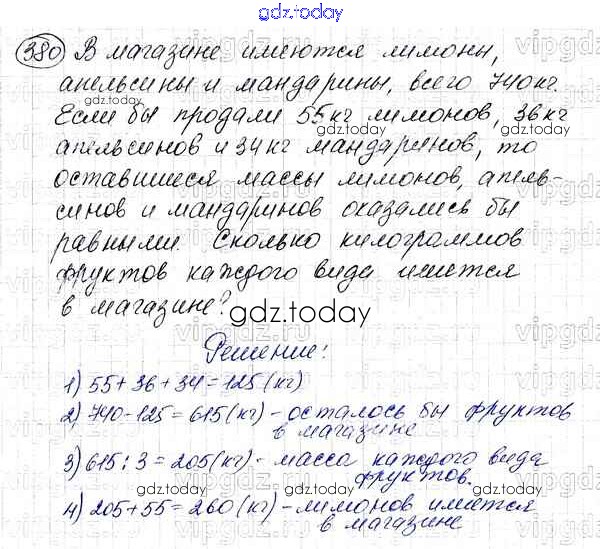 gdz.today
380 В магазине имеются лимоны,
апельсины и мандарины, всего 740 кг.
Если бы продали 55 кг лимонов, 36 кг
апельсинов и 34 кг мандаринов, то
оставшиеся массы лимонов, апель-
синов и мандаринов оказались бы
равными. Сколько килограммов
фруктов каждого вида имеется
в магазине?
gdz.today
Решение:
1) 55+36+34=125(кг)
2) 740-125=615(кг)-осталось бы фруктов
в магазине
3) 615:3=205(кг)-масса каждого вида
фруктов.
4) 205+55=260(кг)-лимонов имеется
в магазине